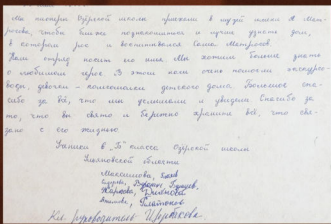 Мы пионеры Озёрской школы приехали в музей имени А. Мат-
росова, чтобы ближе познакомиться и лучше узнать дом,
в котором рос и воспитывался Саша Матросов.
Наш отряд носит его имя. Мы хотим больше знать
о любимом герое. В этом нам очень помогли экскурсо-
воды, девочки-комсомолки детского дома. Большое спа-
сибо за всё, что мы услышали и увидели. Спасибо за
то, что вы свято и бережно храните всё, что свя-
зано с его жизнью
Ученики 5 класса Озёрской школы
Ульяновской области
Максимова,
Кл. руководитель